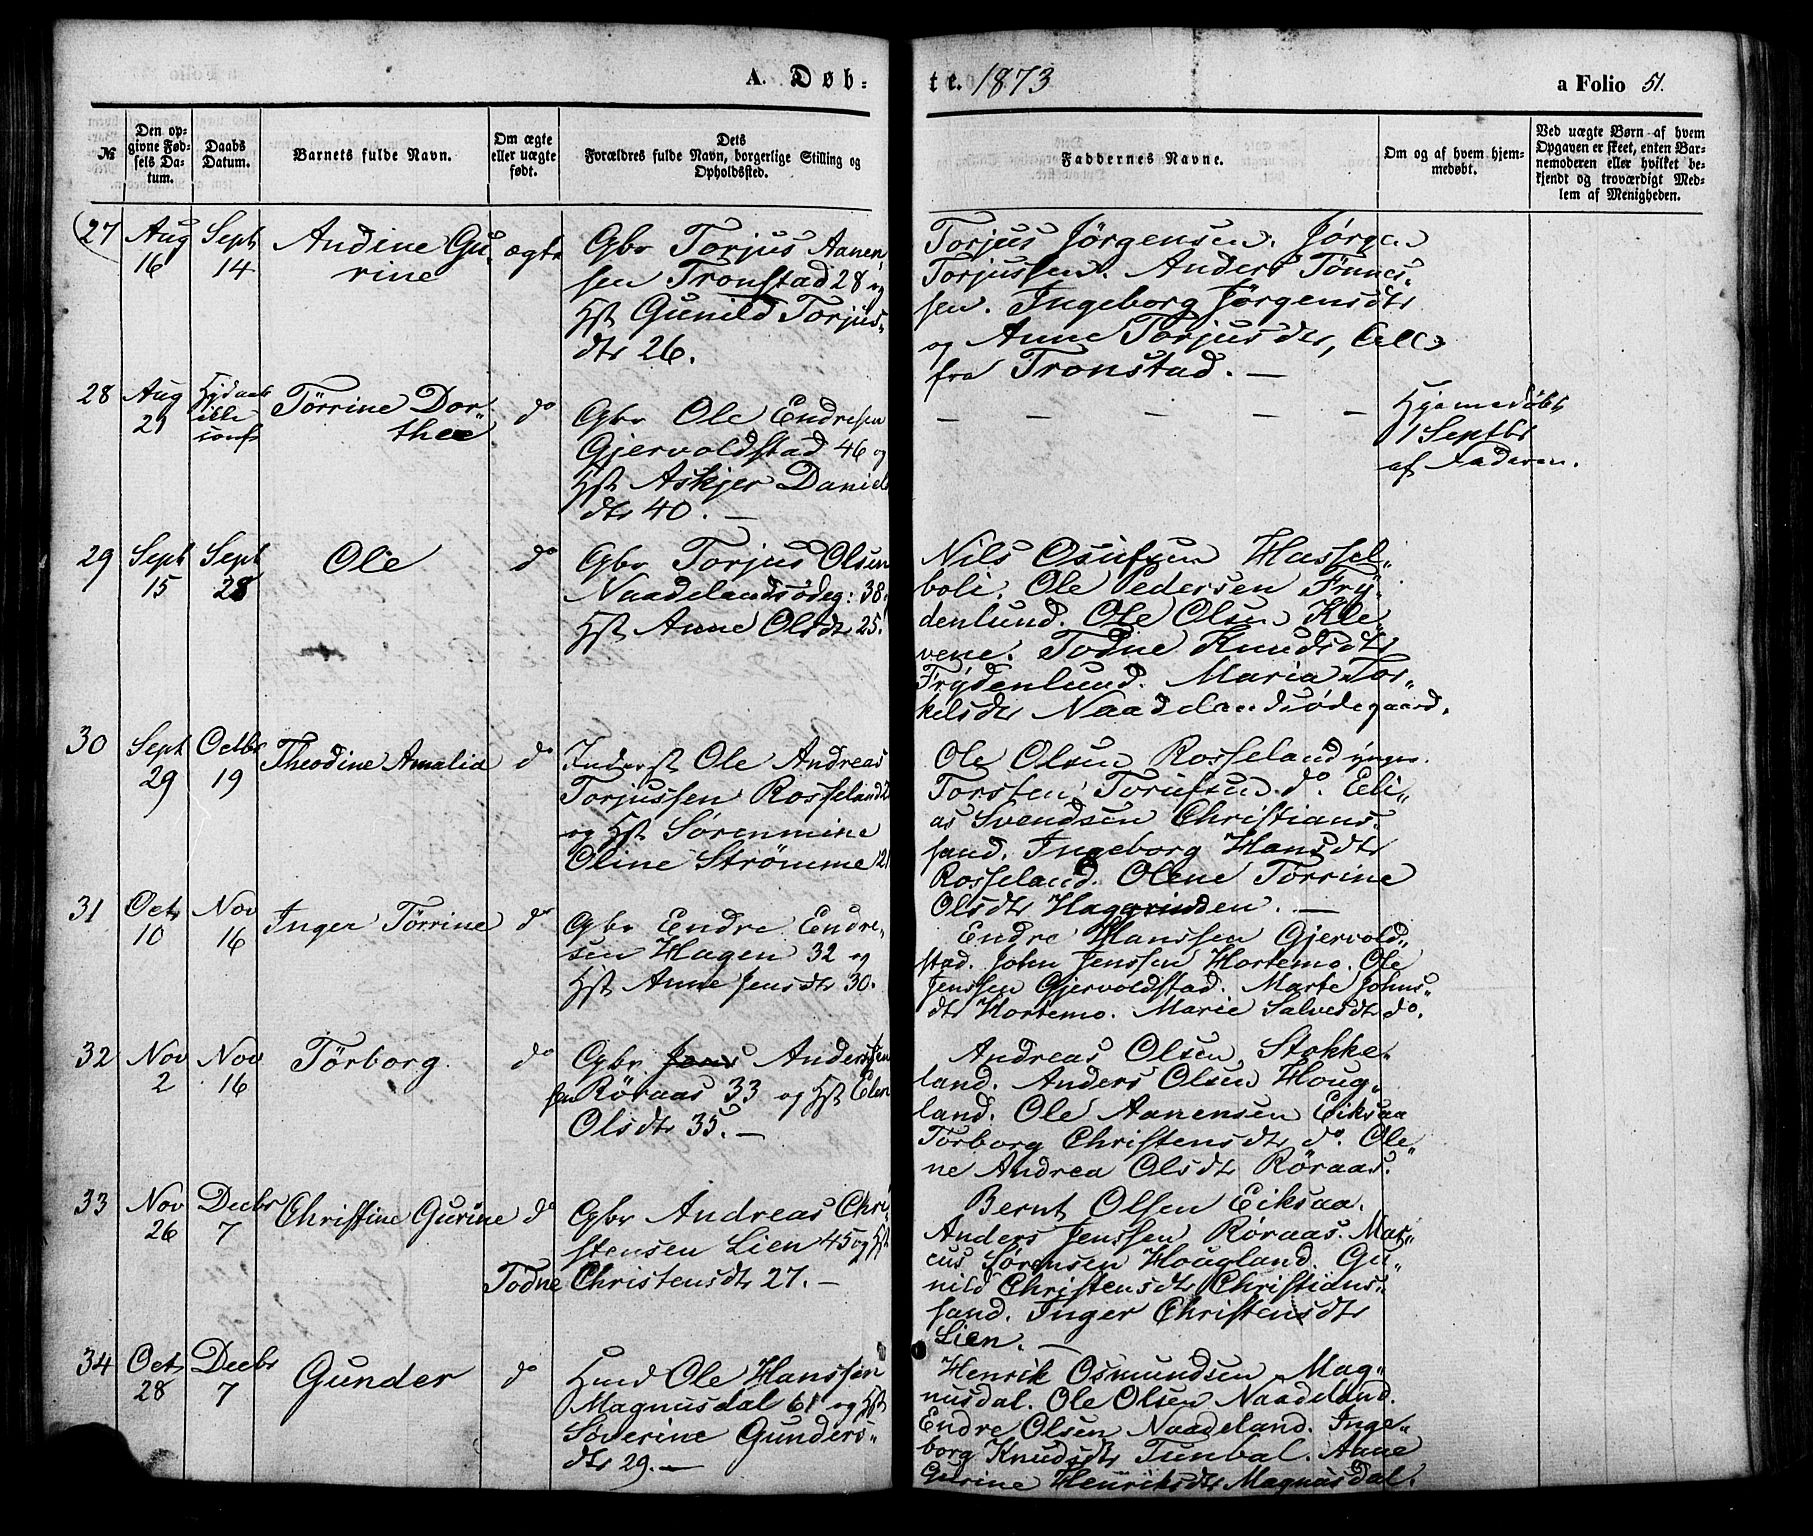 A. Døb-
te. 1873
a Folio 51.
№
Den op-
givne Fød-
sels Da-
tum.
Daabs
Datum.
Barnets fulde Navn.
Om ægte
eller uægte
født.
Dets
Forældres fulde Navn, borgerlige Stilling og
Opholdssted.
Faddernes Navne.
Om og af hvem hjem-
medøbt.
Ved uægte Børn af hvem
Opgaven er skeet, enten Bar-
nemoderen eller hvilket be-
kjendt og troværdigt Med-
lem af Menigheden.
27
Aug
16
Sept
14
Andine Gu-
rine
ægte
Gbr Torjus Aanen-
sen Tronstad 28 og
Hst Gunild Torjus-
dtr 26.
Torjus Jörgensen. Jörgen
Torjussen. Anders Tönnes-
sen. Ingeborg Jörgensdtr
og Anne Torjusdtr, Alle
fra Tronstad. —
28
Aug
21
ikke
Törrine Dor-
thee
do
Gbr Ole Endresen
Gjervoldstad 46 og
Hst Askjer Daniels
dtr 40. —
— — — — —
Hjemedöbt
1 Septbr
af Faderen.
29
Sept
15
Sept
28
Ole
do
Gbr Torjus Olsen
Naadelandsödeg: 38.
Hst Anne Olsdtr 25.
Nils Osufsen Hassel-
boli. Ole Pedersen Fry-
denlund. Ole Olsen Kle-
vene. Todne Knudsdtr
Frydenlund. Maria Tor-
kelsdtr Naadelandsödegaard.
30
Sept
29
Octbr
19
Theodine Amalia
do
Inderst Ole Andreas
Torjussen Rosseland
og Hst Sörenmine
Oline Strömme 21
Ole Olsen Rosseland yngre.
Torsten Torjufsen do. Eli-
as Svendsen Christians-
sand. Ingeborg Hansdtr
Rosseland. Olene Torrine
Olsdtr Haagrinden. —
31
Oct
10
Nov
16
Inger Törrine
do
Gbr Endre Endre-
sen Hagen 32 og
Hst Anne Jensdtr 30.
Endre Hanssen Gjervold-
stad. John Jenssen Hortemo. Ole
Jenssen Gjervoldstad. Marte Johns-
dtr Hortemo. Marie Salvesdtr do.
32
Nov
2
Nov
16
Törborg
do
Gbr Jens Anders
sen Röraas 33 og Hst Elen
Olsdtr 35. —
Andreas Olsen Stokke-
land. Anders Olsen Houg-
land. Ole Aanensen Eiksaa
Törborg Christensdtr do. Ole-
ne Andrea Olsdtr Röraas.
33
Nov
26
Decbr
7
Christine Gurine
do
Gbr Andreas Chri-
stensen Lien 45 og Hst
Todne Christensdtr 27. —
Bernt Olsen Eiksaa.
Anders Jenssen Röraas. Mar-
cus Sörensen Hougland. Gu-
nild Christensdtr Christians-
sand. Inger Christensdtr
Lien. —
34
Oct
28
Decbr
7
Gunder
do
Hmd Ole Hanssen
Magnusdal 61 og Hst
Soverine Gunders-
dtr 29. —
Henrik Osmundsen Mag-
nusdal. Ole Olsen Naadeland.
Endre Olsen Naadeland. Inge-
borg Knudsdtr Tunbal. Anne
Gurine Henriksdtr Magnusdal.